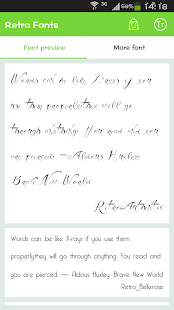 3G 58% 14:18
Retro Fonts Tt
Font preview More font
Words can be like X-rays if you
use them properlythey will go
through anything. You read and you
are pierced. — Aldous Huxley
Brave New World
RetroAuthentic
Words can be like X-rays if you use them
properlythey will go through anything. You read and
you are pierced. — Aldous Huxley, Brave New World
Retro_Bellerose